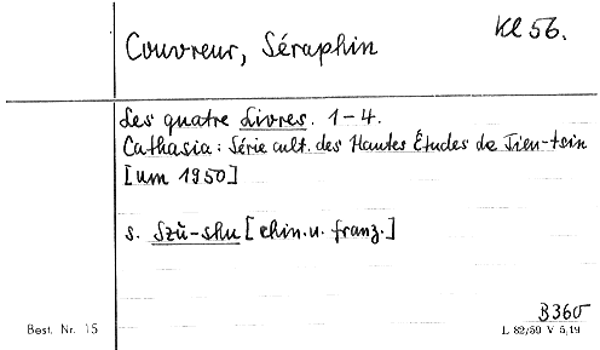 Kl 56.
Couvreur, Séraphin
Les quatre Livres. 1-4.
Cathasia: Série cult. des Hautes Études de Tien-tsin
[um 1950]
s. Szŭ-shu [chin. u. franz.]
B360
Best. Nr. 15
L 82/59 V 5,19